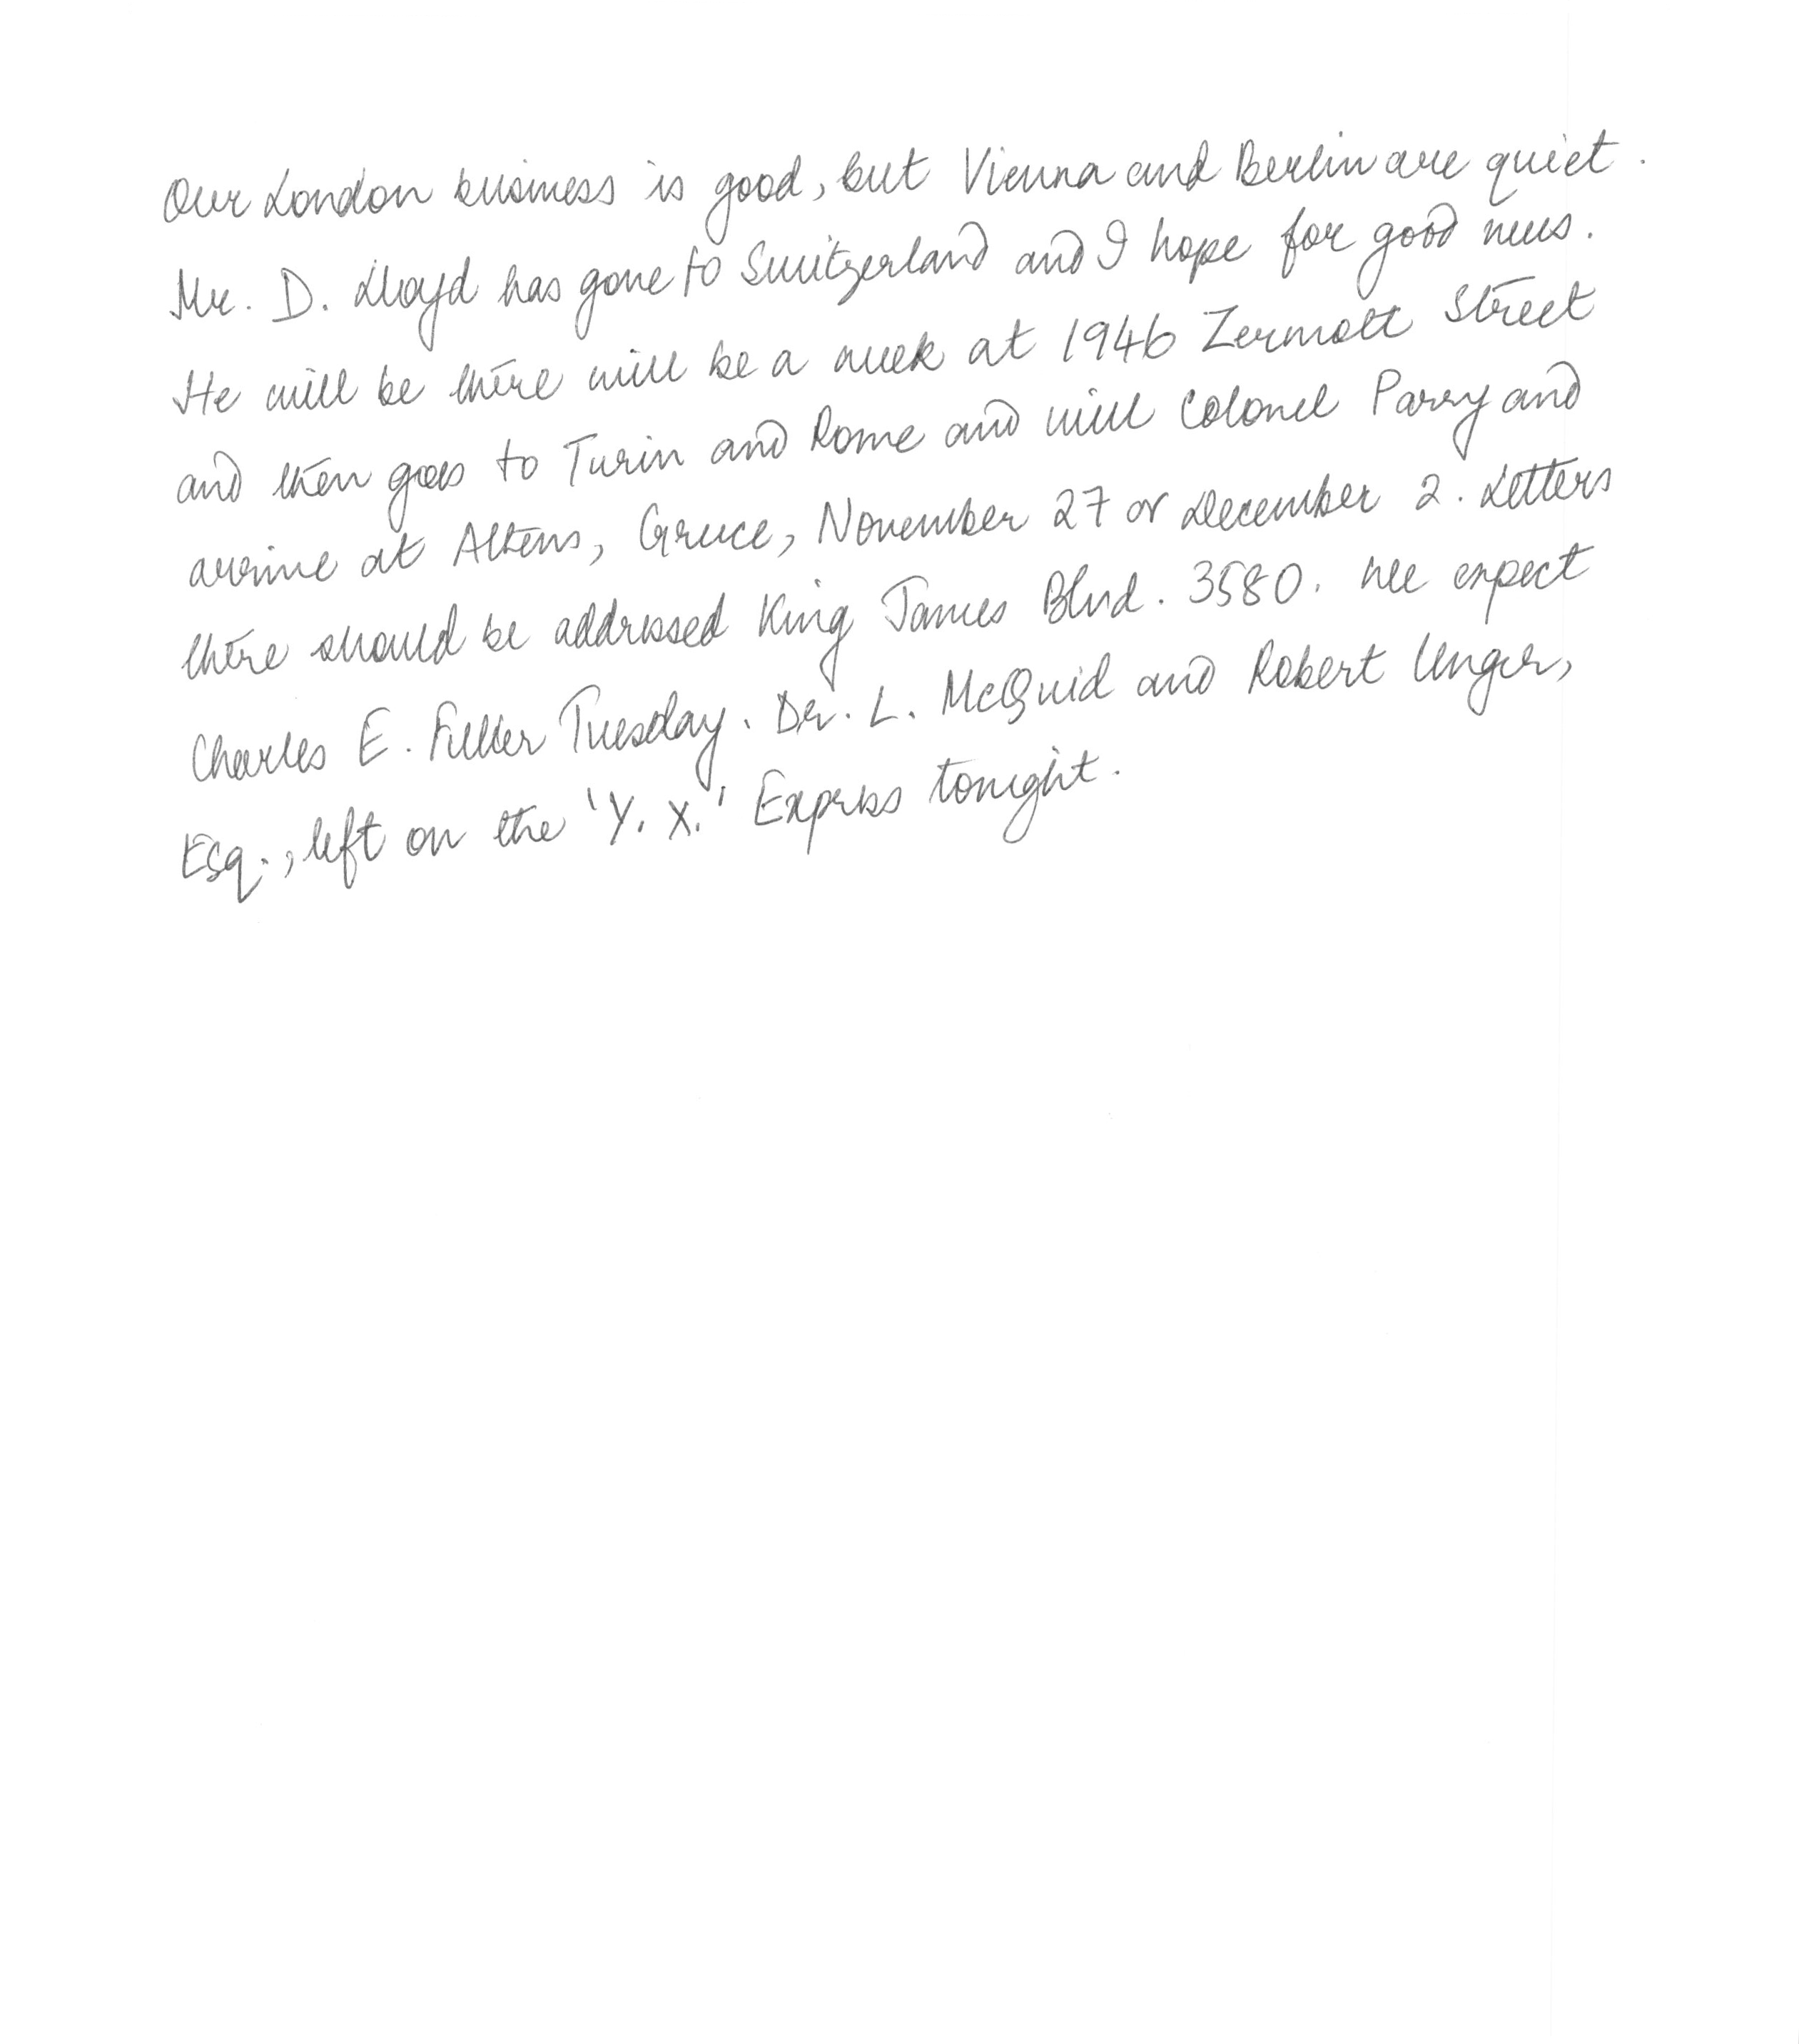 Our London business is good, but Vienna and Berlin are quiet.
Mr. D. Lloyd has gone to Switzerland and I hope for good news.
He will be there will be a week at 1946 Zermott Street
and then goes to Turin and Rome and will Colonel Parry and
arrive at Athens, Greece, November 27 or December 2. Letters
there should be addressed King James Blvd. 3580. We expect
Charles E. Fuller Tuesday. Dr. L. McQuid and Robert Unger,
Esq., left on the 'Y. X.' Express tonight.